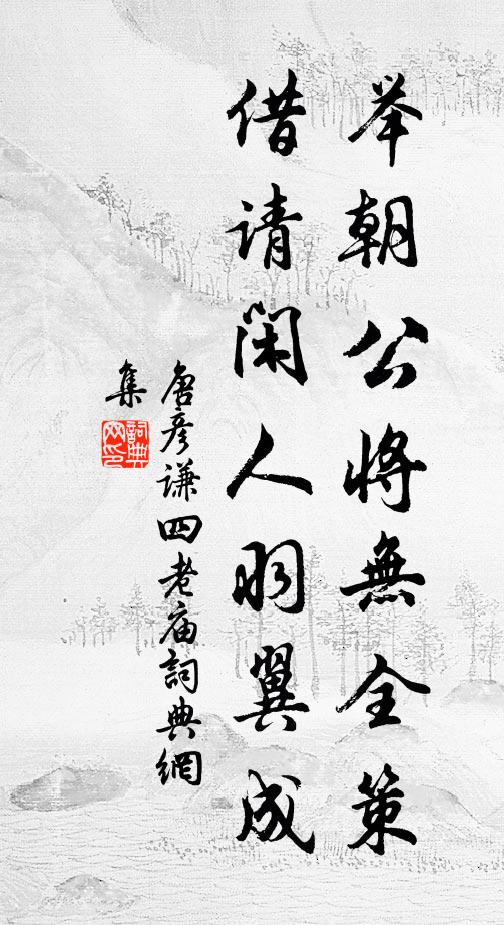 举朝公将無全策
借请闲人羽翼成
唐彦谦四老庙詞典網
集
詞典网印